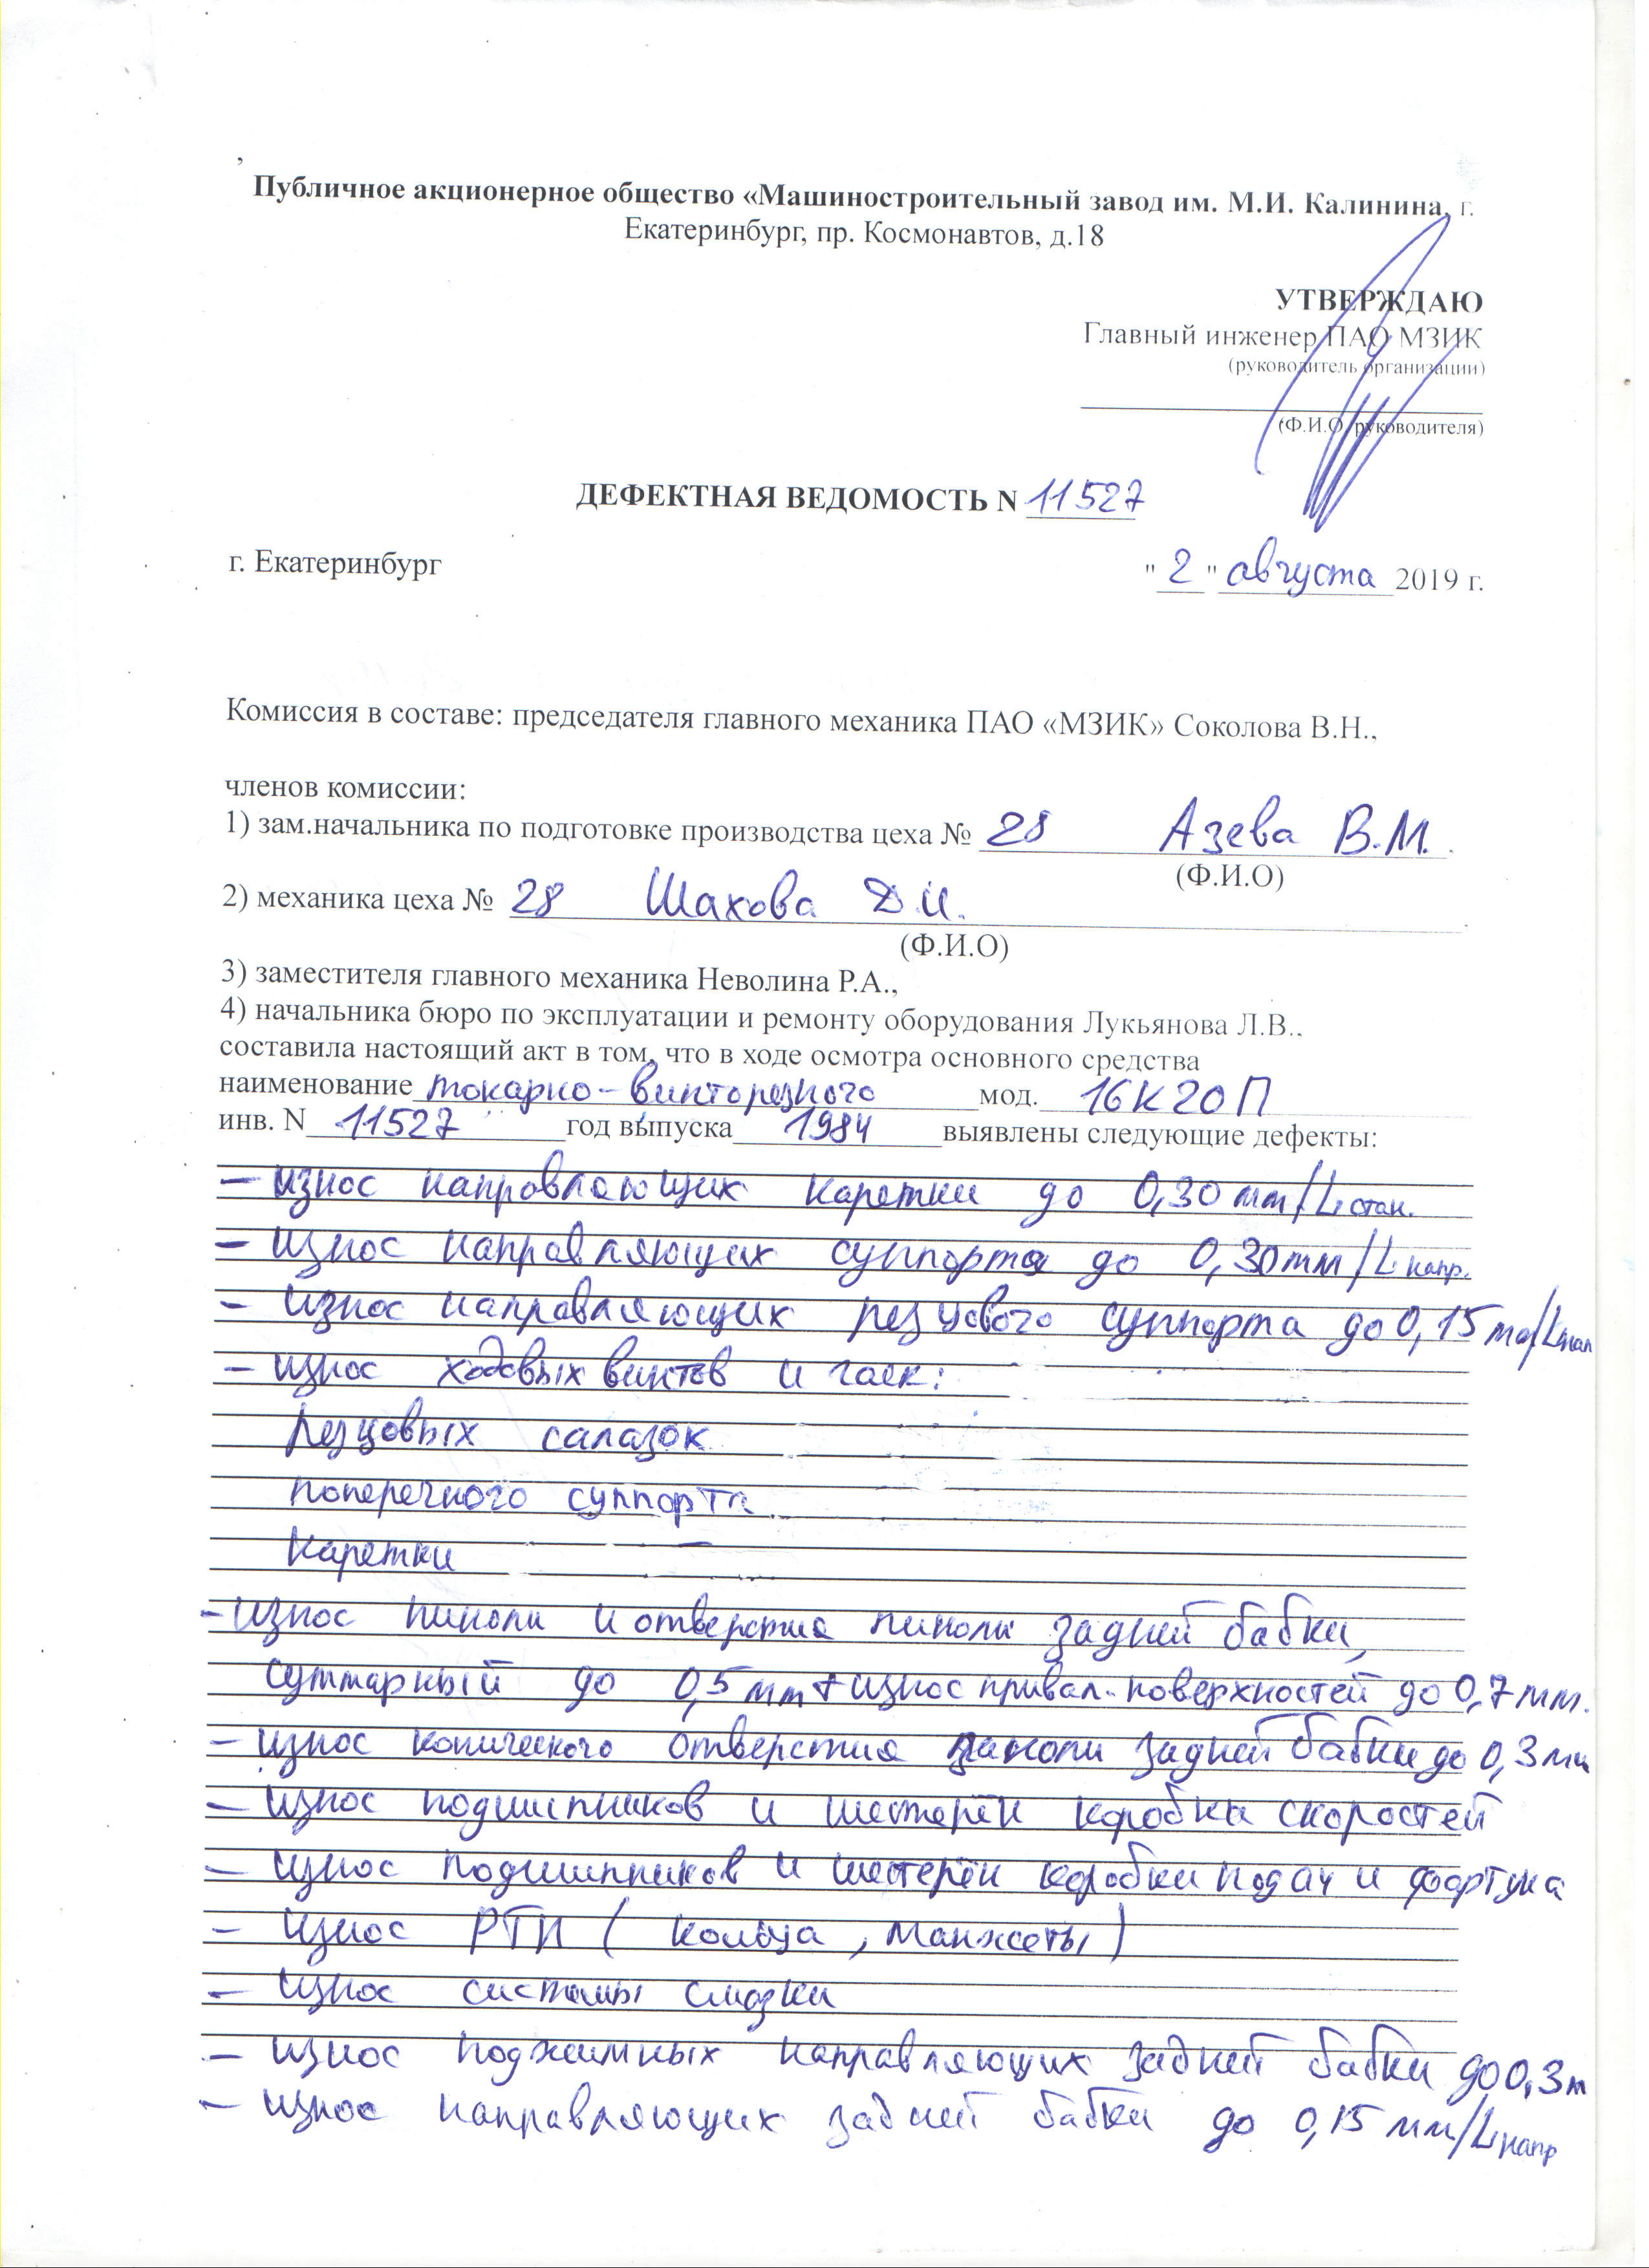 Публичное акционерное общество «Машиностроительный завод им. М.И. Калинина, г.
Екатеринбург, пр. Космонавтов, д.18
УТВЕРЖДАЮ
Главный инженер ПАО МЗИК
(руководитель организации)
(Ф.И.О. руководителя)
ДЕФЕКТНАЯ ВЕДОМОСТЬ N 11527
г. Екатеринбург "2" августа 2019 г.
Комиссия в составе: председателя главного механика ПАО «МЗИК» Соколова В.Н.,
членов комиссии:
1) зам.начальника по подготовке производства цеха № 28 Азева В.М.
(Ф.И.О)
2) механика цеха № 28 Шахова Д.И.
(Ф.И.О)
3) заместителя главного механика Неволина Р.А.,
4) начальника бюро по эксплуатации и ремонту оборудования Лукьянова Л.В.,
составила настоящий акт в том, что в ходе осмотра основного средства
наименование токарно-винторезного мод. 16К20П
инв. N 11527 год выпуска 1984 выявлены следующие дефекты:
– износ направляющих каретки до 0,30 мм/L стан.
– износ направляющих суппорта до 0,30 мм/L напр.
– износ направляющих резцового суппорта до 0,15 мм/L нап
– износ ходовых винтов и гаек:
резцовых салазок
поперечного суппорта
каретки
– износ пиноли и отверстия пиноли задней бабки,
суммарный до 0,5 мм + износ привал. поверхностей до 0,7 мм.
– износ конического отверстия пиноли задней бабки до 0,3 мм
– износ подшипников и шестерён коробки скоростей
– износ подшипников и шестерён коробки подач и фартука
– износ РТИ (кольца, манжеты)
– износ системы смазки
– износ поджимных направляющих задней бабки до 0,3 м
– износ направляющих задней бабки до 0,15 мм/L напр